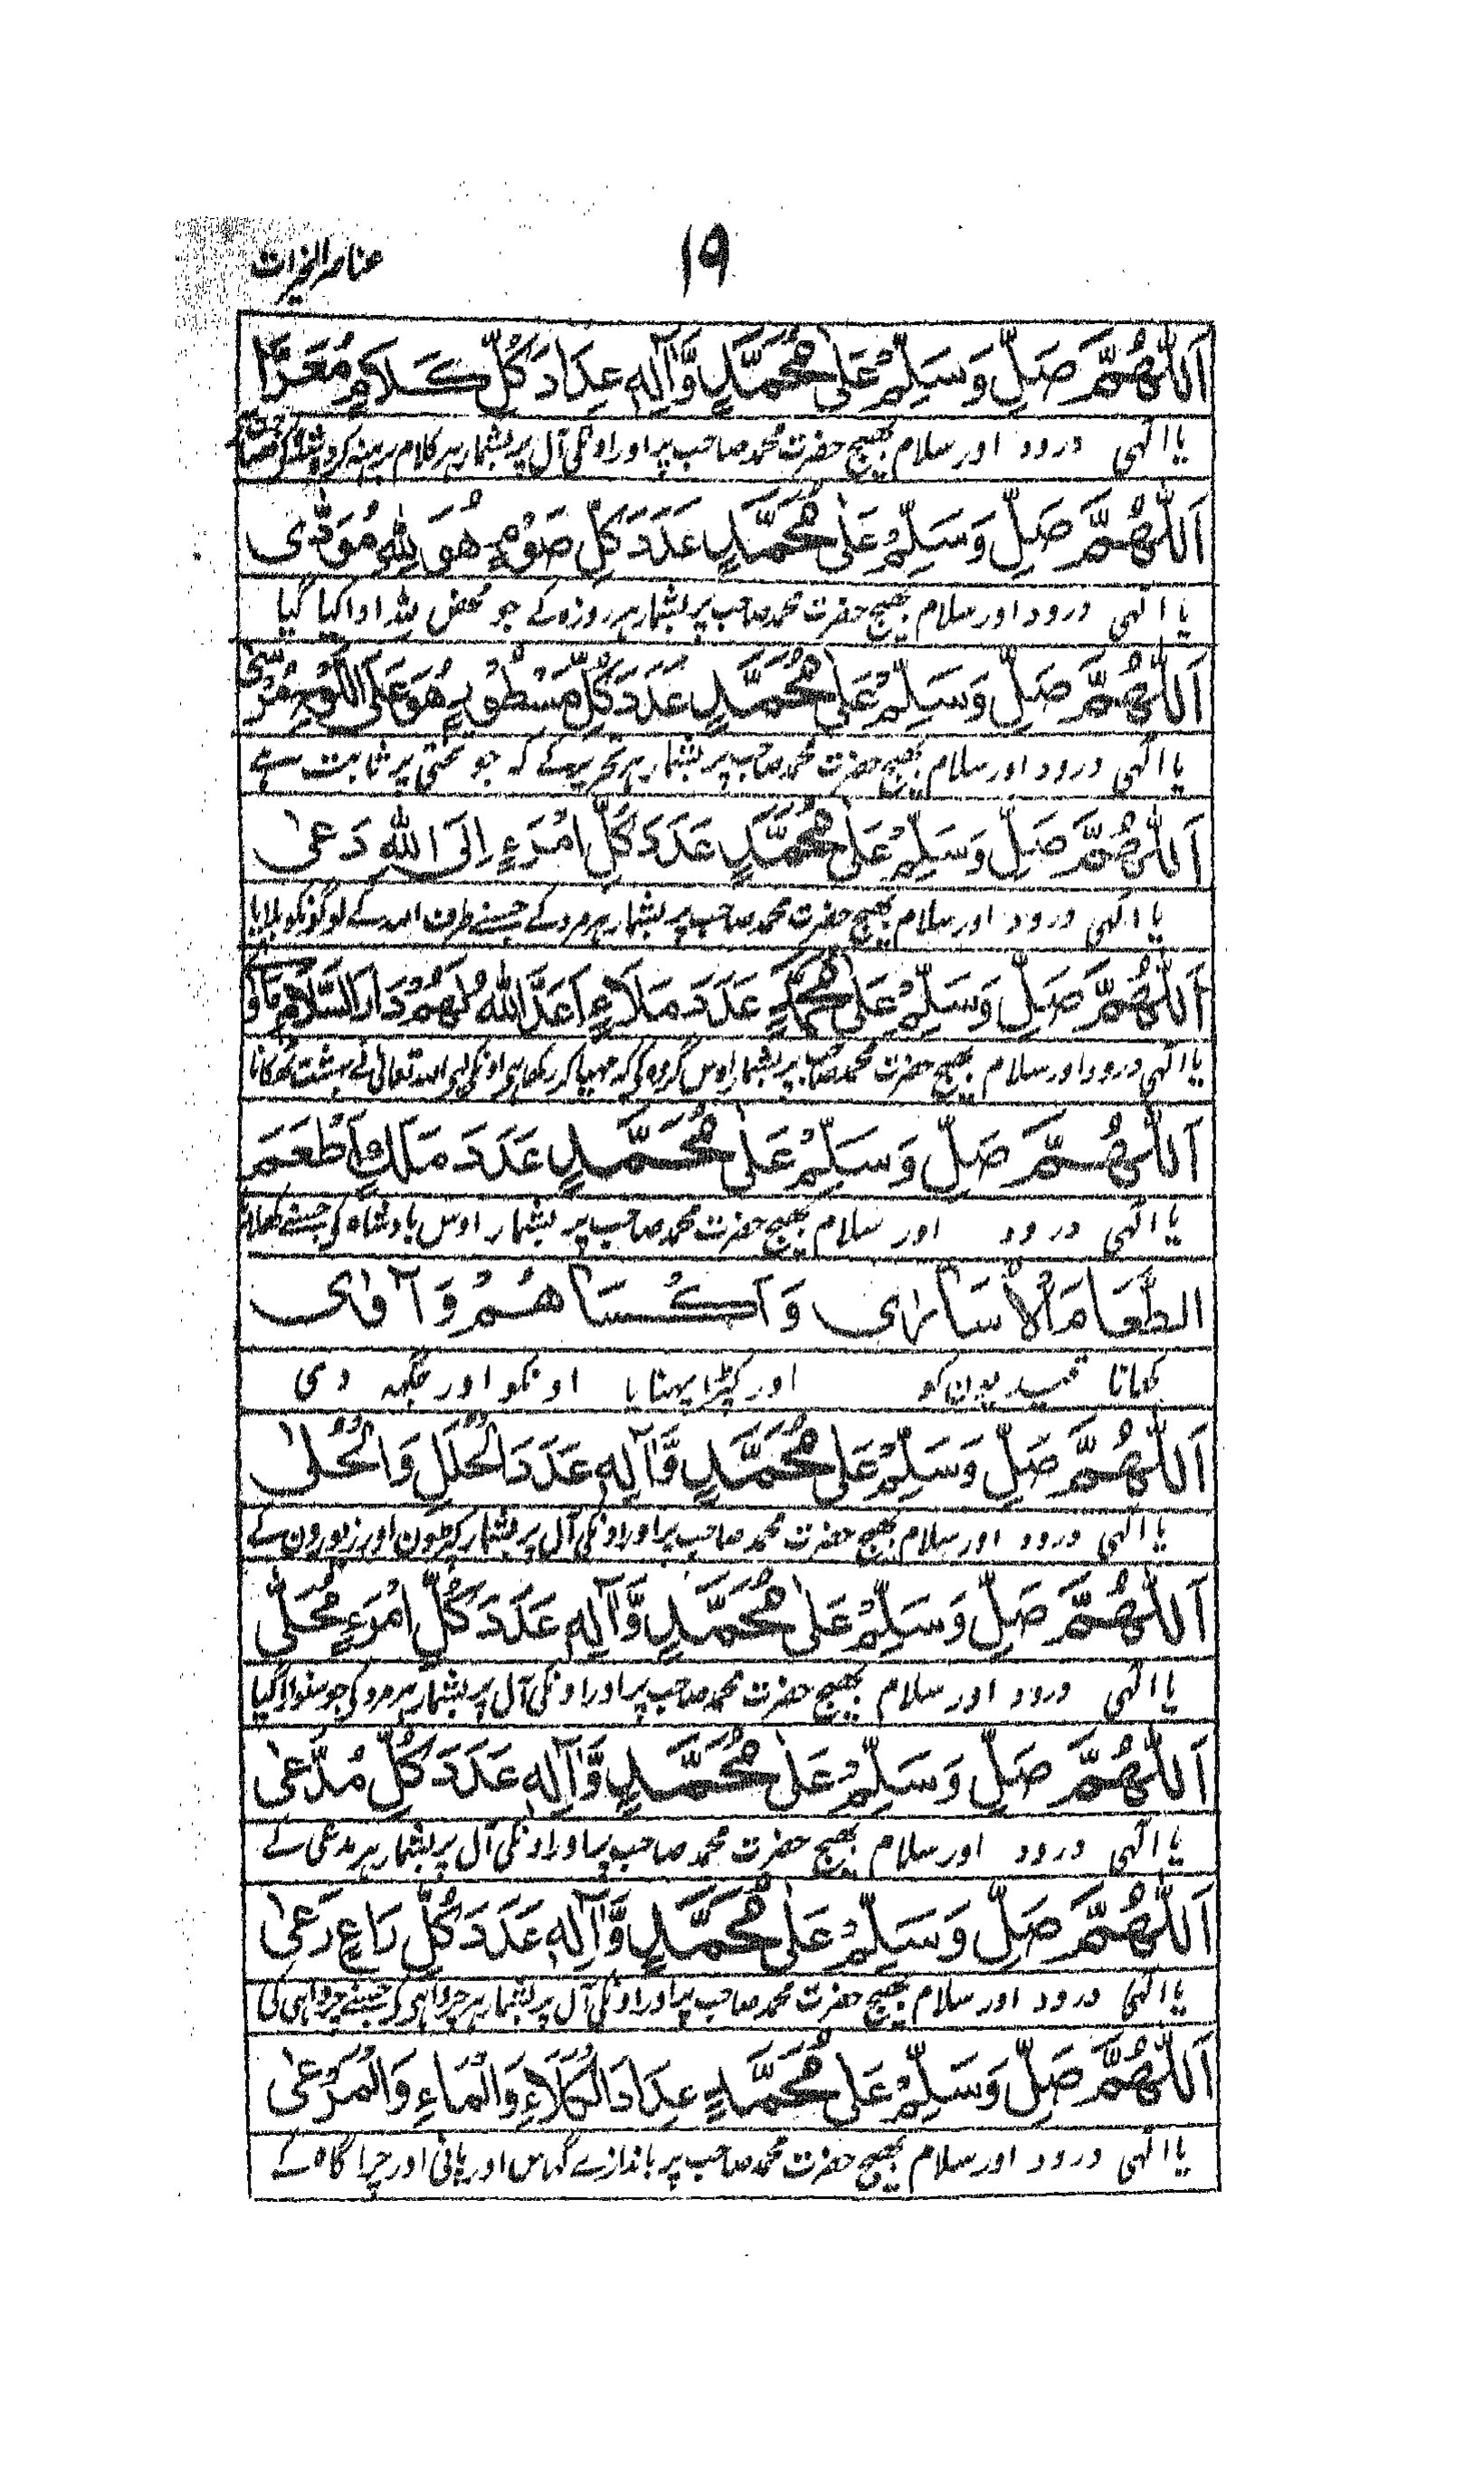 ۱۹
عناصر الخیرات
اَللّٰهُمَّ صَلِّ وَسَلِّمْ عَلٰى مُحَمَّدٍ وَّاٰلِهٖ عِدَادَ كُلِّ كَلَامٍ مُعَرّٰا
یا الٰہی درود اور سلام بھیج حضرت محمد صاحب پر اور اونکی آل پر بشمار ہر کلام برہنہ کردہ شدہ کے
اَللّٰهُمَّ صَلِّ وَسَلِّمْ عَلٰى مُحَمَّدٍ عَدَدَ كُلِّ صَوْمٍ هُوَ لِلّٰهِ مُوَدّٰى
یا الٰہی درود اور سلام بھیج حضرت محمد صاحب پر بشمار ہر روزہ کے جو محض للہ ادا کیا گیا
اَللّٰهُمَّ صَلِّ وَسَلِّمْ عَلٰى مُحَمَّدٍ عَدَدَ كُلِّ مَسْطُوْرٍ هُوَ عَلَى اللَّوْحِ
یا الٰہی درود اور سلام بھیج حضرت محمد صاحب پر بشمار ہر تحریر کے کہ جو تختی پر ثابت ہے
اَللّٰهُمَّ صَلِّ وَسَلِّمْ عَلٰى مُحَمَّدٍ عَدَدَ كُلِّ امْرَءٍ اِلَى اللّٰهِ دَعٰى
یا الٰہی درود اور سلام بھیج حضرت محمد صاحب پر بشمار ہر مرد کے جسنے طرف اللہ کے لوگونکو بلایا
اَللّٰهُمَّ صَلِّ وَسَلِّمْ عَلٰى مُحَمَّدٍ عَدَدَ مَلَاءٍ اَعَدَّ اللّٰهُ لَهُمْ دَارَ السَّلَامِ مَاْوٰى
یا الٰہی درود اور سلام بھیج حضرت محمد صاحب پر بشمار اوس گروہ کی کہ مہیا کر رکھا ہی اونکی لیی اللہ تعالیٰ نے بہشت ٹھکانا
اَللّٰهُمَّ صَلِّ وَسَلِّمْ عَلٰى مُحَمَّدٍ عَدَدَ مَلِكٍ اَطْعَمَ
یا الٰہی درود اور سلام بھیج حضرت محمد صاحب پر بشمار اوس بادشاہ کی جسنے کھلایا
الطَّعَامَ الْاُسَارٰى وَاَكْسَاهُمْ وَاٰوٰى
کھانا قیدیون کو اور کپڑا پہنایا اونکو اور جگہہ دی
اَللّٰهُمَّ صَلِّ وَسَلِّمْ عَلٰى مُحَمَّدٍ وَّاٰلِهٖ عَدَدَ الْحُلَلِ وَالْحُلٰى
یا الٰہی درود اور سلام بھیج حضرت محمد صاحب پر اور اونکی آل پر بشمار کپڑون اور زیورون کے
اَللّٰهُمَّ صَلِّ وَسَلِّمْ عَلٰى مُحَمَّدٍ وَّاٰلِهٖ عَدَدَ كُلِّ امْرَءٍ مُحَلّٰى
یا الٰہی درود اور سلام بھیج حضرت محمد صاحب پر اور اونکی آل پر بشمار ہر مرد کی جو سنوارا گیا
اَللّٰهُمَّ صَلِّ وَسَلِّمْ عَلٰى مُحَمَّدٍ وَّاٰلِهٖ عَدَدَ كُلِّ مُدَّعٰى
یا الٰہی درود اور سلام بھیج حضرت محمد صاحب پر اور اونکی آل پر بشمار ہر مدعی کے
اَللّٰهُمَّ صَلِّ وَسَلِّمْ عَلٰى مُحَمَّدٍ وَّاٰلِهٖ عَدَدَ كُلِّ رَاعٍ رَعٰى
یا الٰہی درود اور سلام بھیج حضرت محمد صاحب پر اور اونکی آل پر بشمار ہر چرواہی کی جسنے چرواہی کی
اَللّٰهُمَّ صَلِّ وَسَلِّمْ عَلٰى مُحَمَّدٍ عِدَادَ الْكَلَاءِ وَالْمَاءِ وَالْمَرْعٰى
یا الٰہی درود اور سلام بھیج حضرت محمد صاحب پر باندازے گہاس اور پانی اور چراگاہ کے